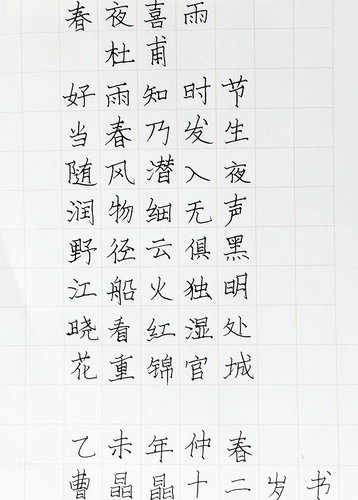 春夜喜雨
杜甫
好雨知时节
当春乃发生
随风潜入夜
润物细无声
野径云俱黑
江船火独明
晓看红湿处
花重锦官城
乙未年仲春
曹晶晶十二岁书